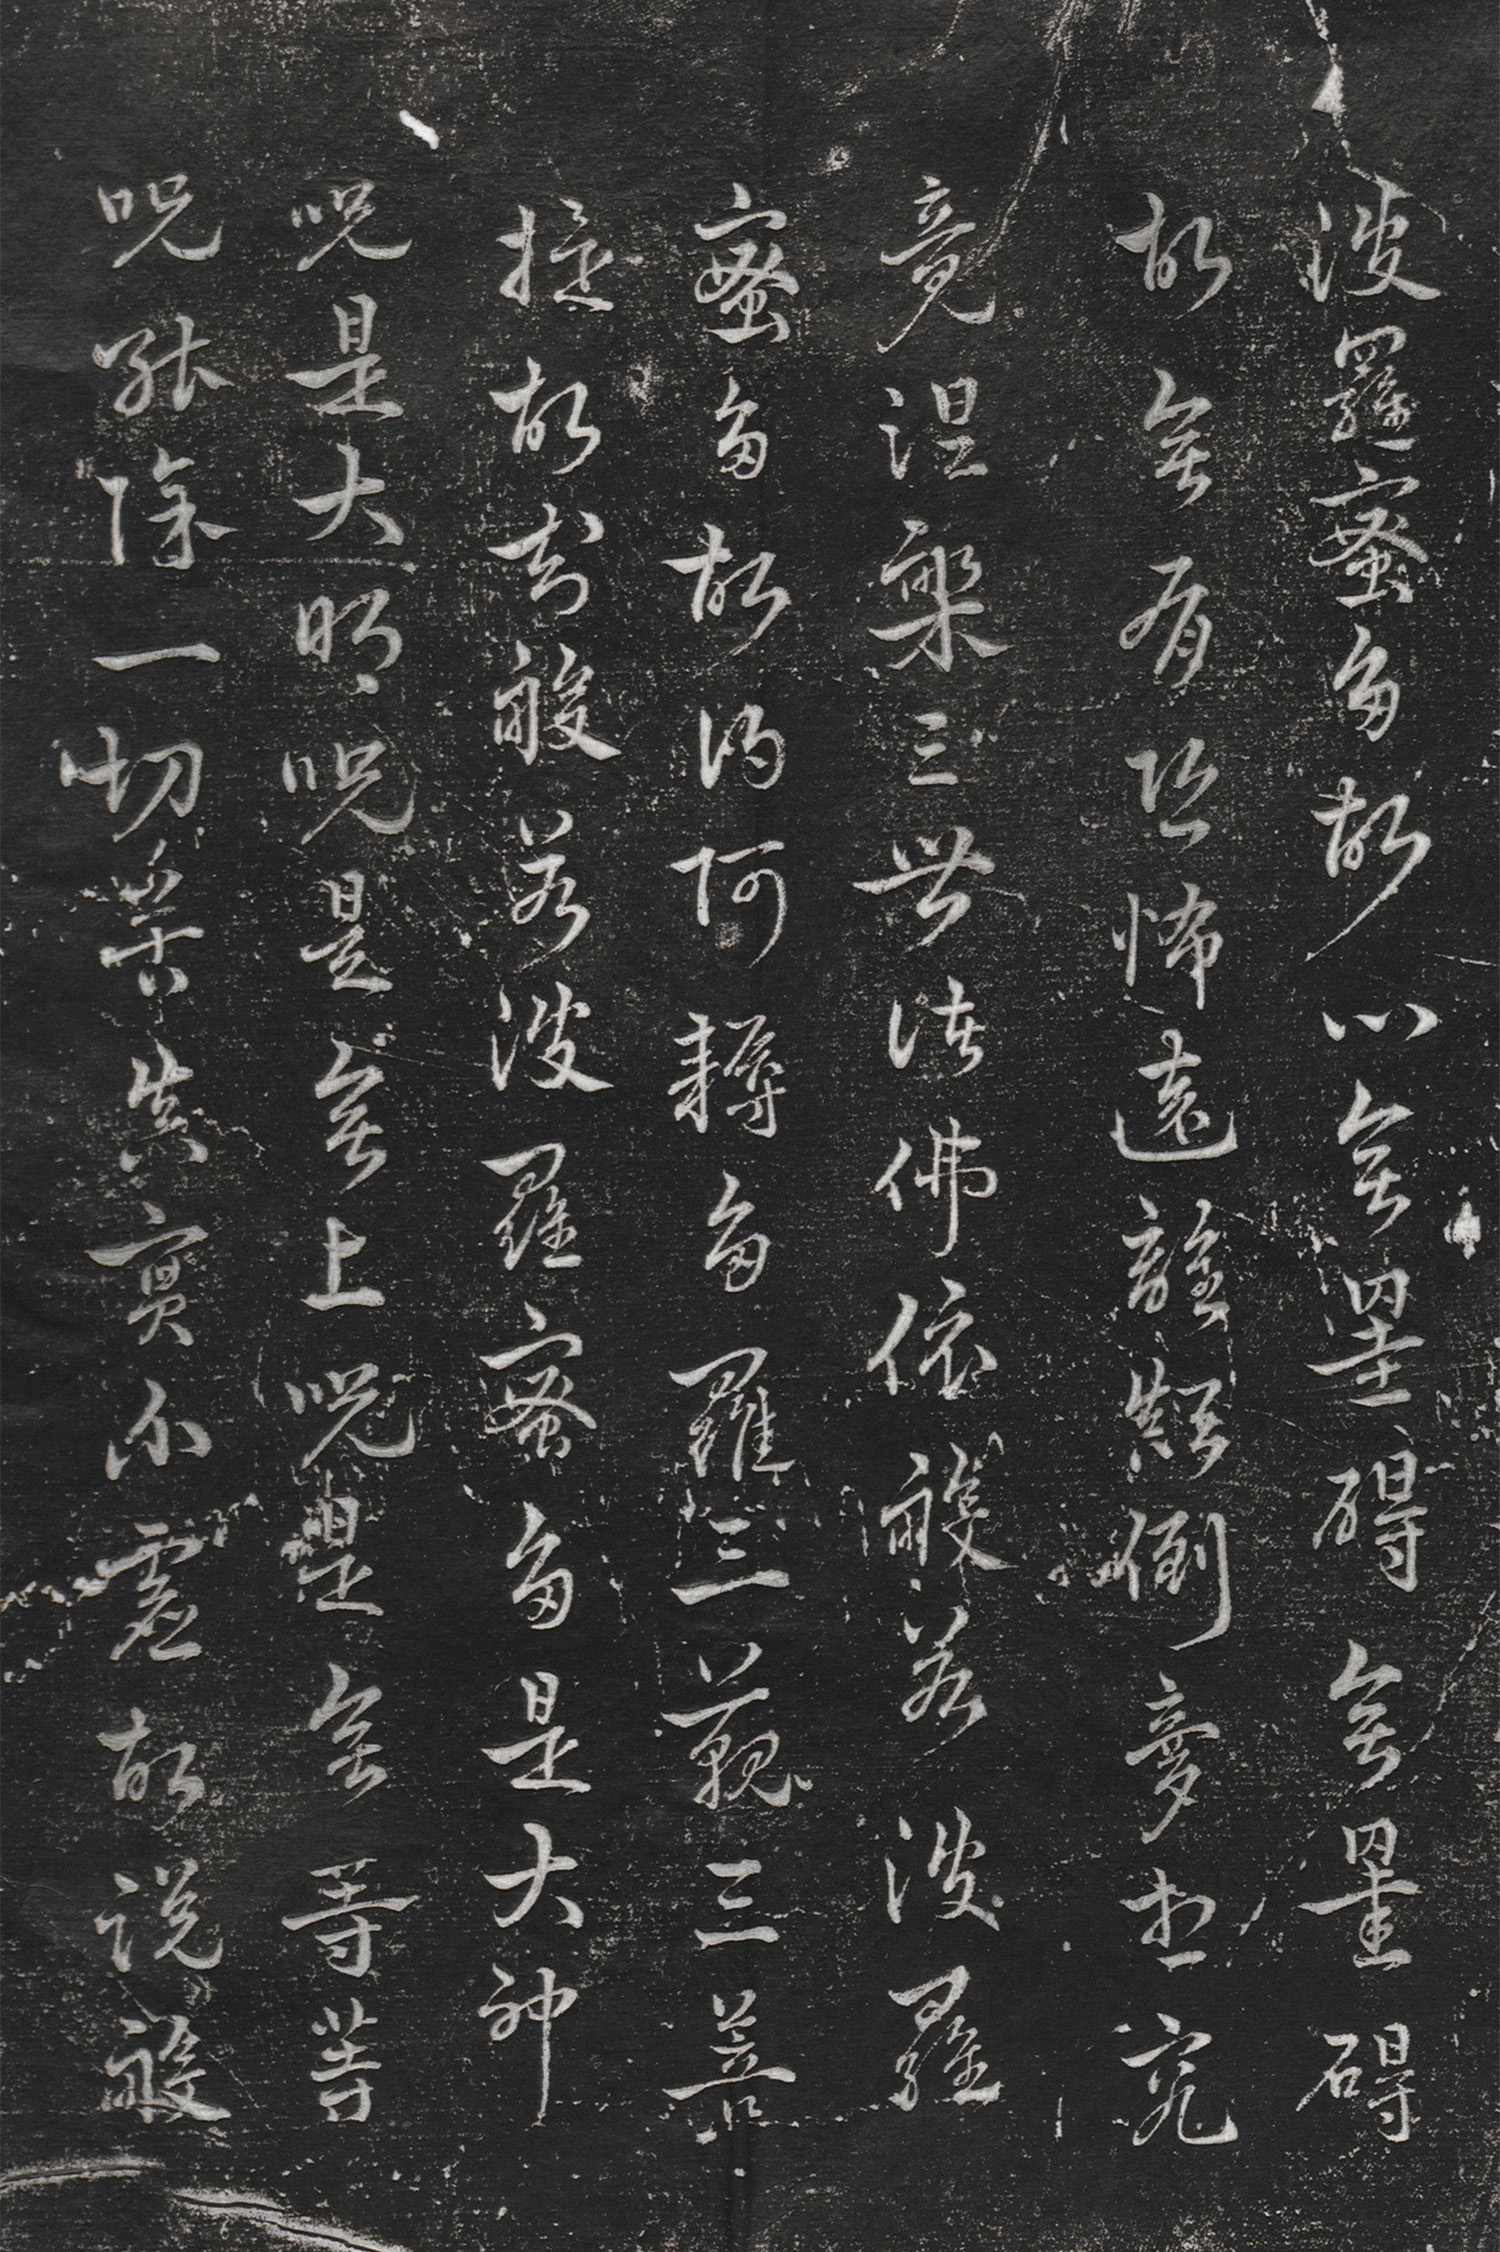 波羅蜜多故心無罣礙無罣礙
故無有恐怖遠離顛倒夢想究
竟涅槃三世諸佛依般若波羅
蜜多故得阿耨多羅三藐三菩
提故知般若波羅蜜多是大神
呪是大明呪是無上呪是無等等
呪能除一切苦真實不虛故說般